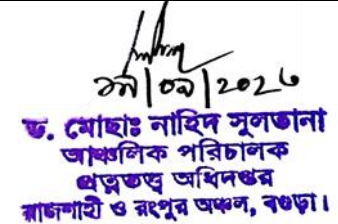 ০৯|২০২৩
ড. মোছাঃ নাহিদ সুলতানা
আঞ্চলিক পরিচালক
প্রত্নতত্ত্ব অধিদপ্তর
রাজশাহী ও রংপুর অঞ্চল, বগুড়া।